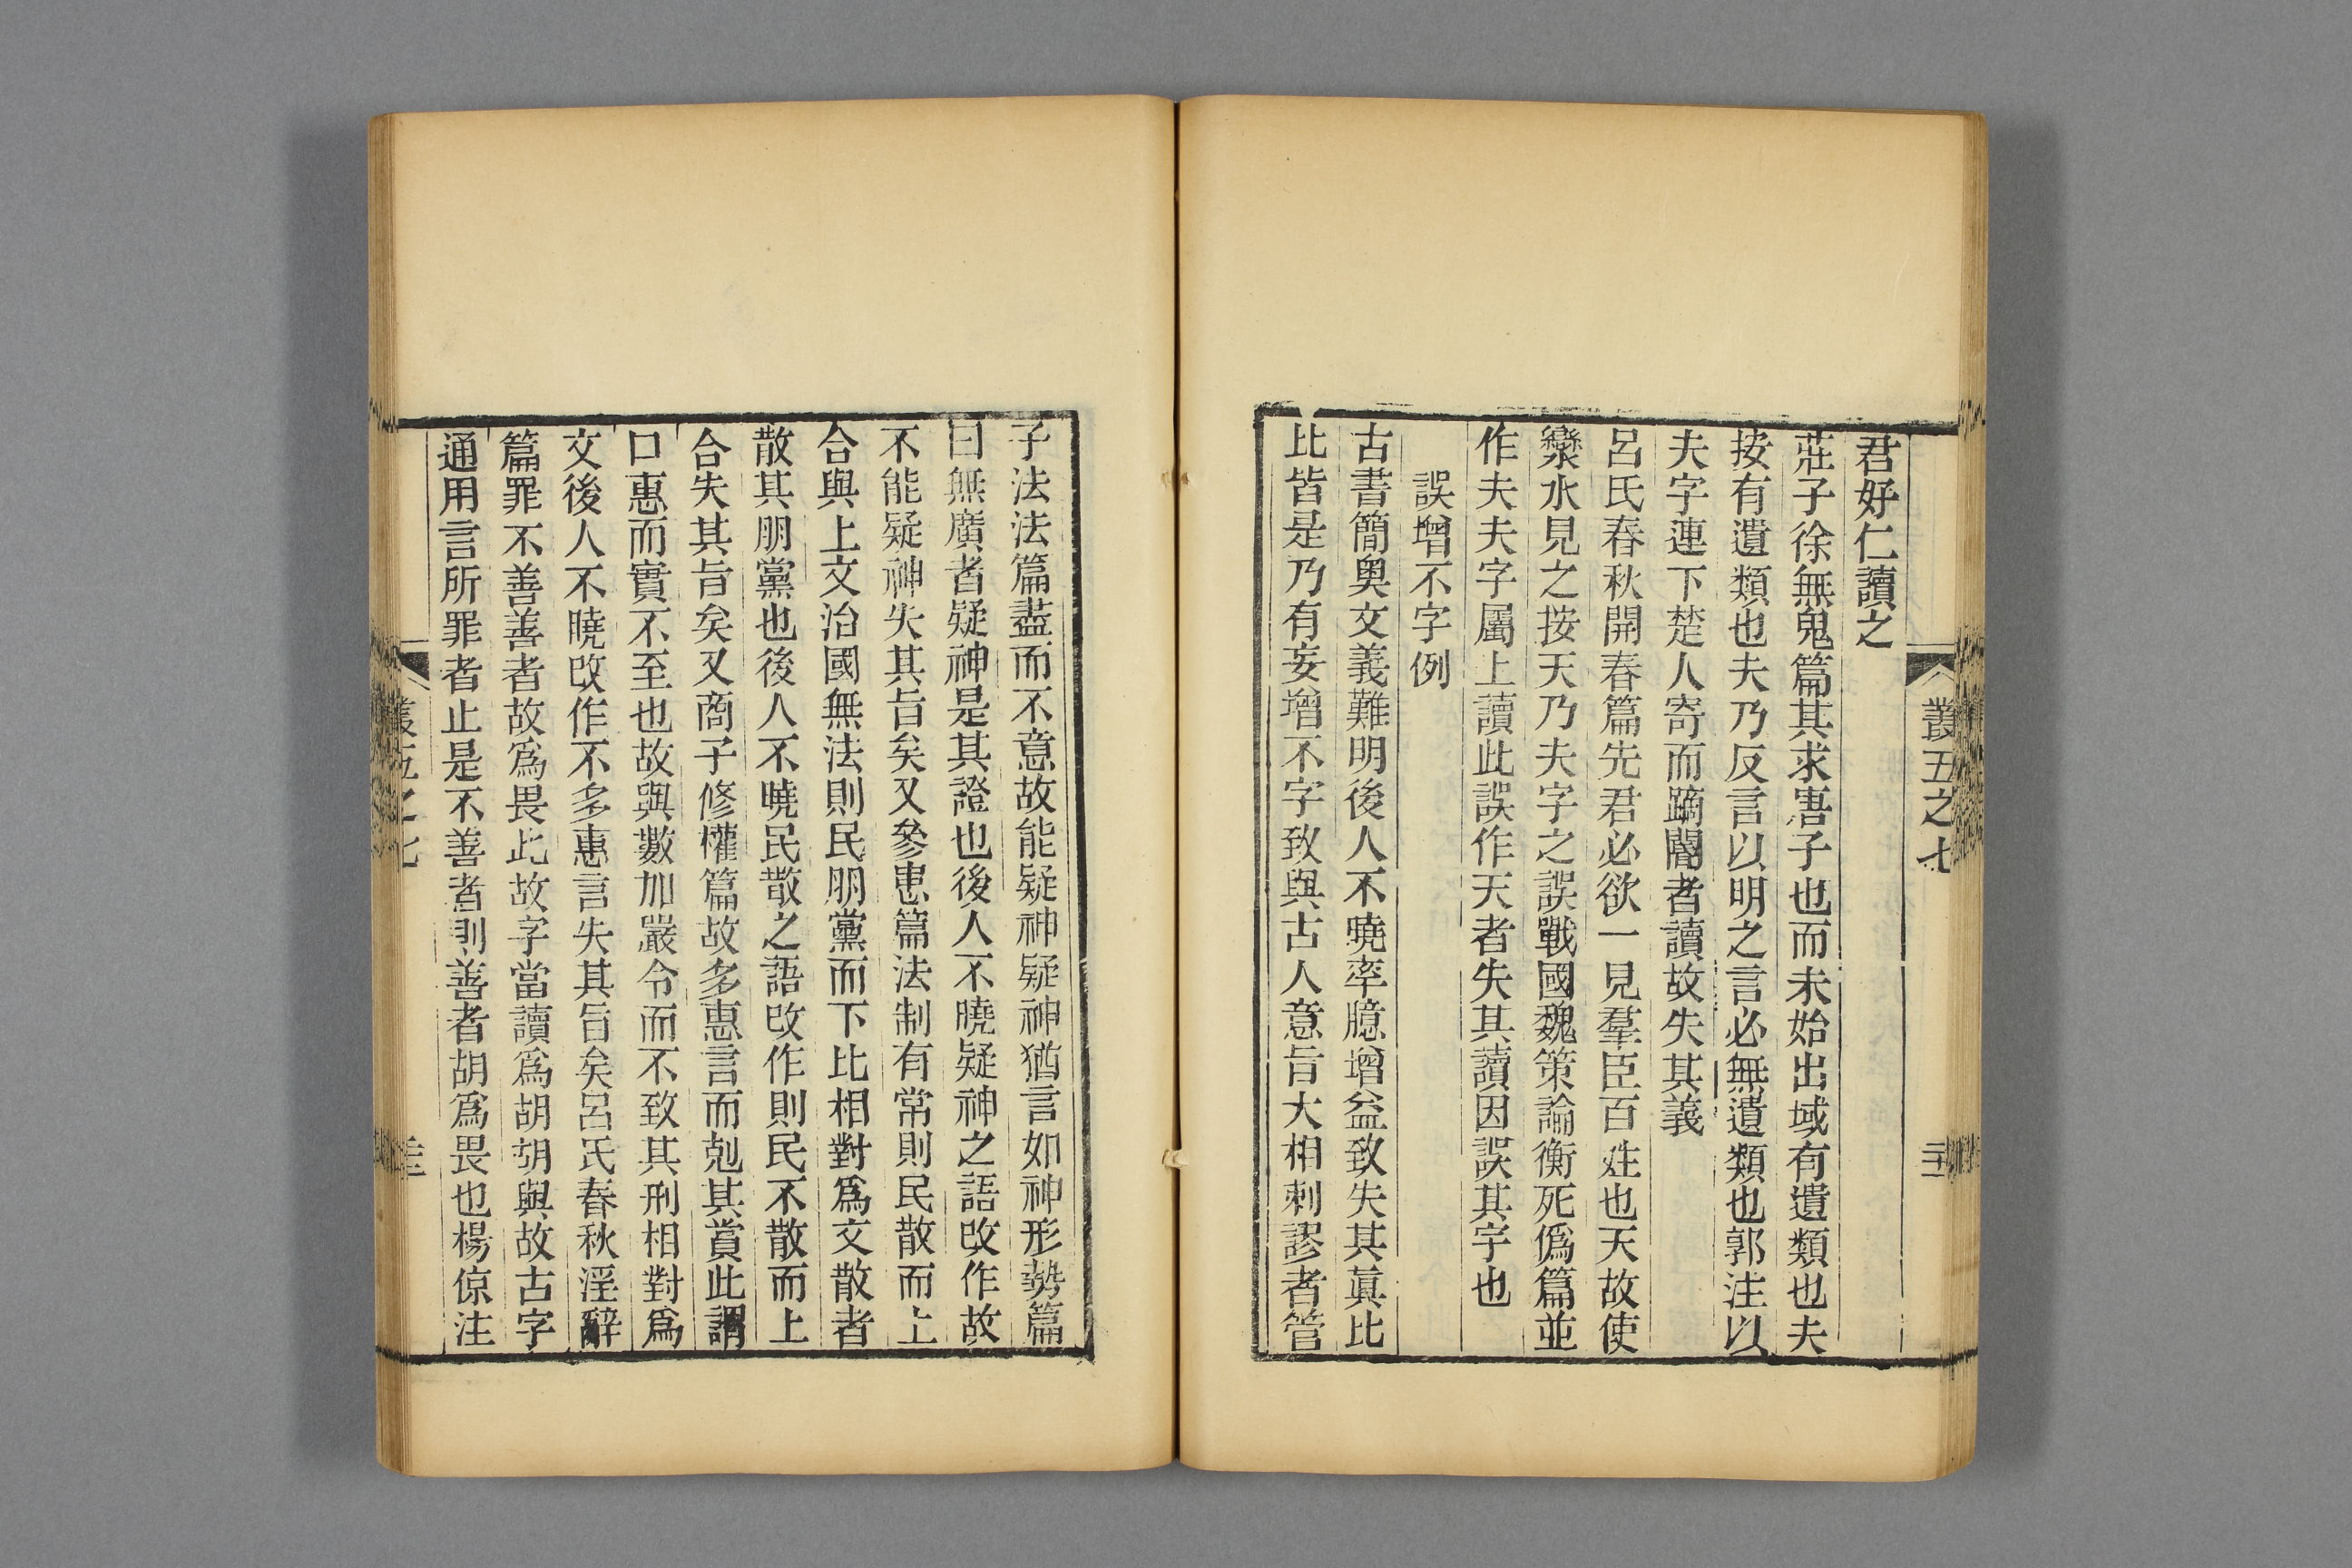 叢五之七
君好仁讀之
莊子徐無鬼篇其求唐子也而未始出域有遺類也夫
按有遺類也夫乃反言以明之言必無遺類也郭注以
夫字連下楚人寄而蹢閽者讀故失其義
呂氏春秋開春篇先君必欲一見羣臣百姓也天故使
欒水見之按天乃夫字之誤戰國魏策論衡死僞篇並
作夫夫字屬上讀此誤作天者失其讀因誤其字也
誤增不字例
古書簡奧文義難明後人不曉率臆增益致失其眞比
比皆是乃有妄增不字致與古人意旨大相刺謬者管
子法法篇蓋而不意故能疑神疑神猶言如神形勢篇
曰無廣者疑神是其證也後人不曉疑神之語改作故
不能疑神失其旨矣又參患篇法制有常則民散而上
合與上文治國無法則民朋黨而下比相對爲文散者
散其朋黨也後人不曉民散之語改作則民不散而上
合失其旨矣又商子修權篇故多惠言而剋其賞此謂
口惠而實不至也故與數加嚴令而不致其刑相對爲
文後人不曉改作不多惠言失其旨矣呂氏春秋淫辭
篇罪不善善者故爲畏此故字當讀爲胡胡與故古字
通用言所罪者止是不善者則善者胡爲畏也楊倞注
叢五之七